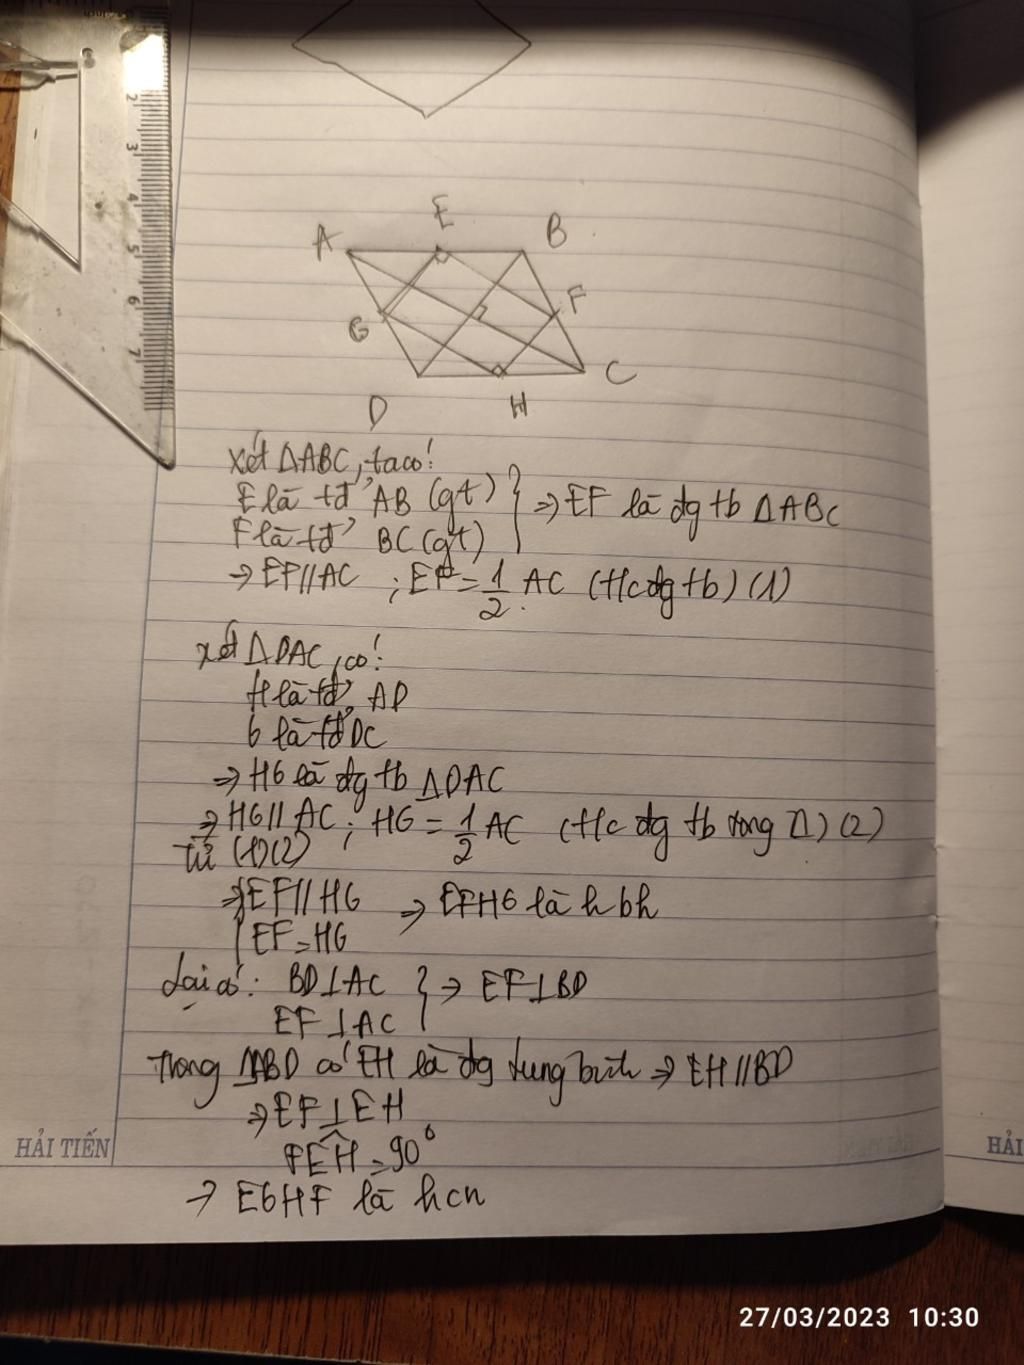 E
A
B
G
F
C
D
H
xét ΔABC, ta có:
E là tđ' AB (gt) } ⇒ EF là đg tb ΔABC
F là tđ' BC (gt)
⇒ EF // AC ; EF = 1/2 AC (t/c đg tb) (1)
xét ΔDAC, có:
H là tđ' AD
G là tđ' DC
⇒ HG là đg tb ΔDAC
⇒ HG // AC ; HG = 1/2 AC (t/c đg tb trong Δ) (2)
từ (1)(2)
⇒ { EF // HG ⇒ EFHG là hbh
EF = HG
Lại có: BD ⊥ AC } ⇒ EF ⊥ BD
EF ⊥ AC
Trong ΔABD có EH là đg trung bình ⇒ EH // BD
⇒ EF ⊥ EH
FEH = 90°
→ EGHF là hcn
HẢI TIẾN
HẢI
27/03/2023 10:30